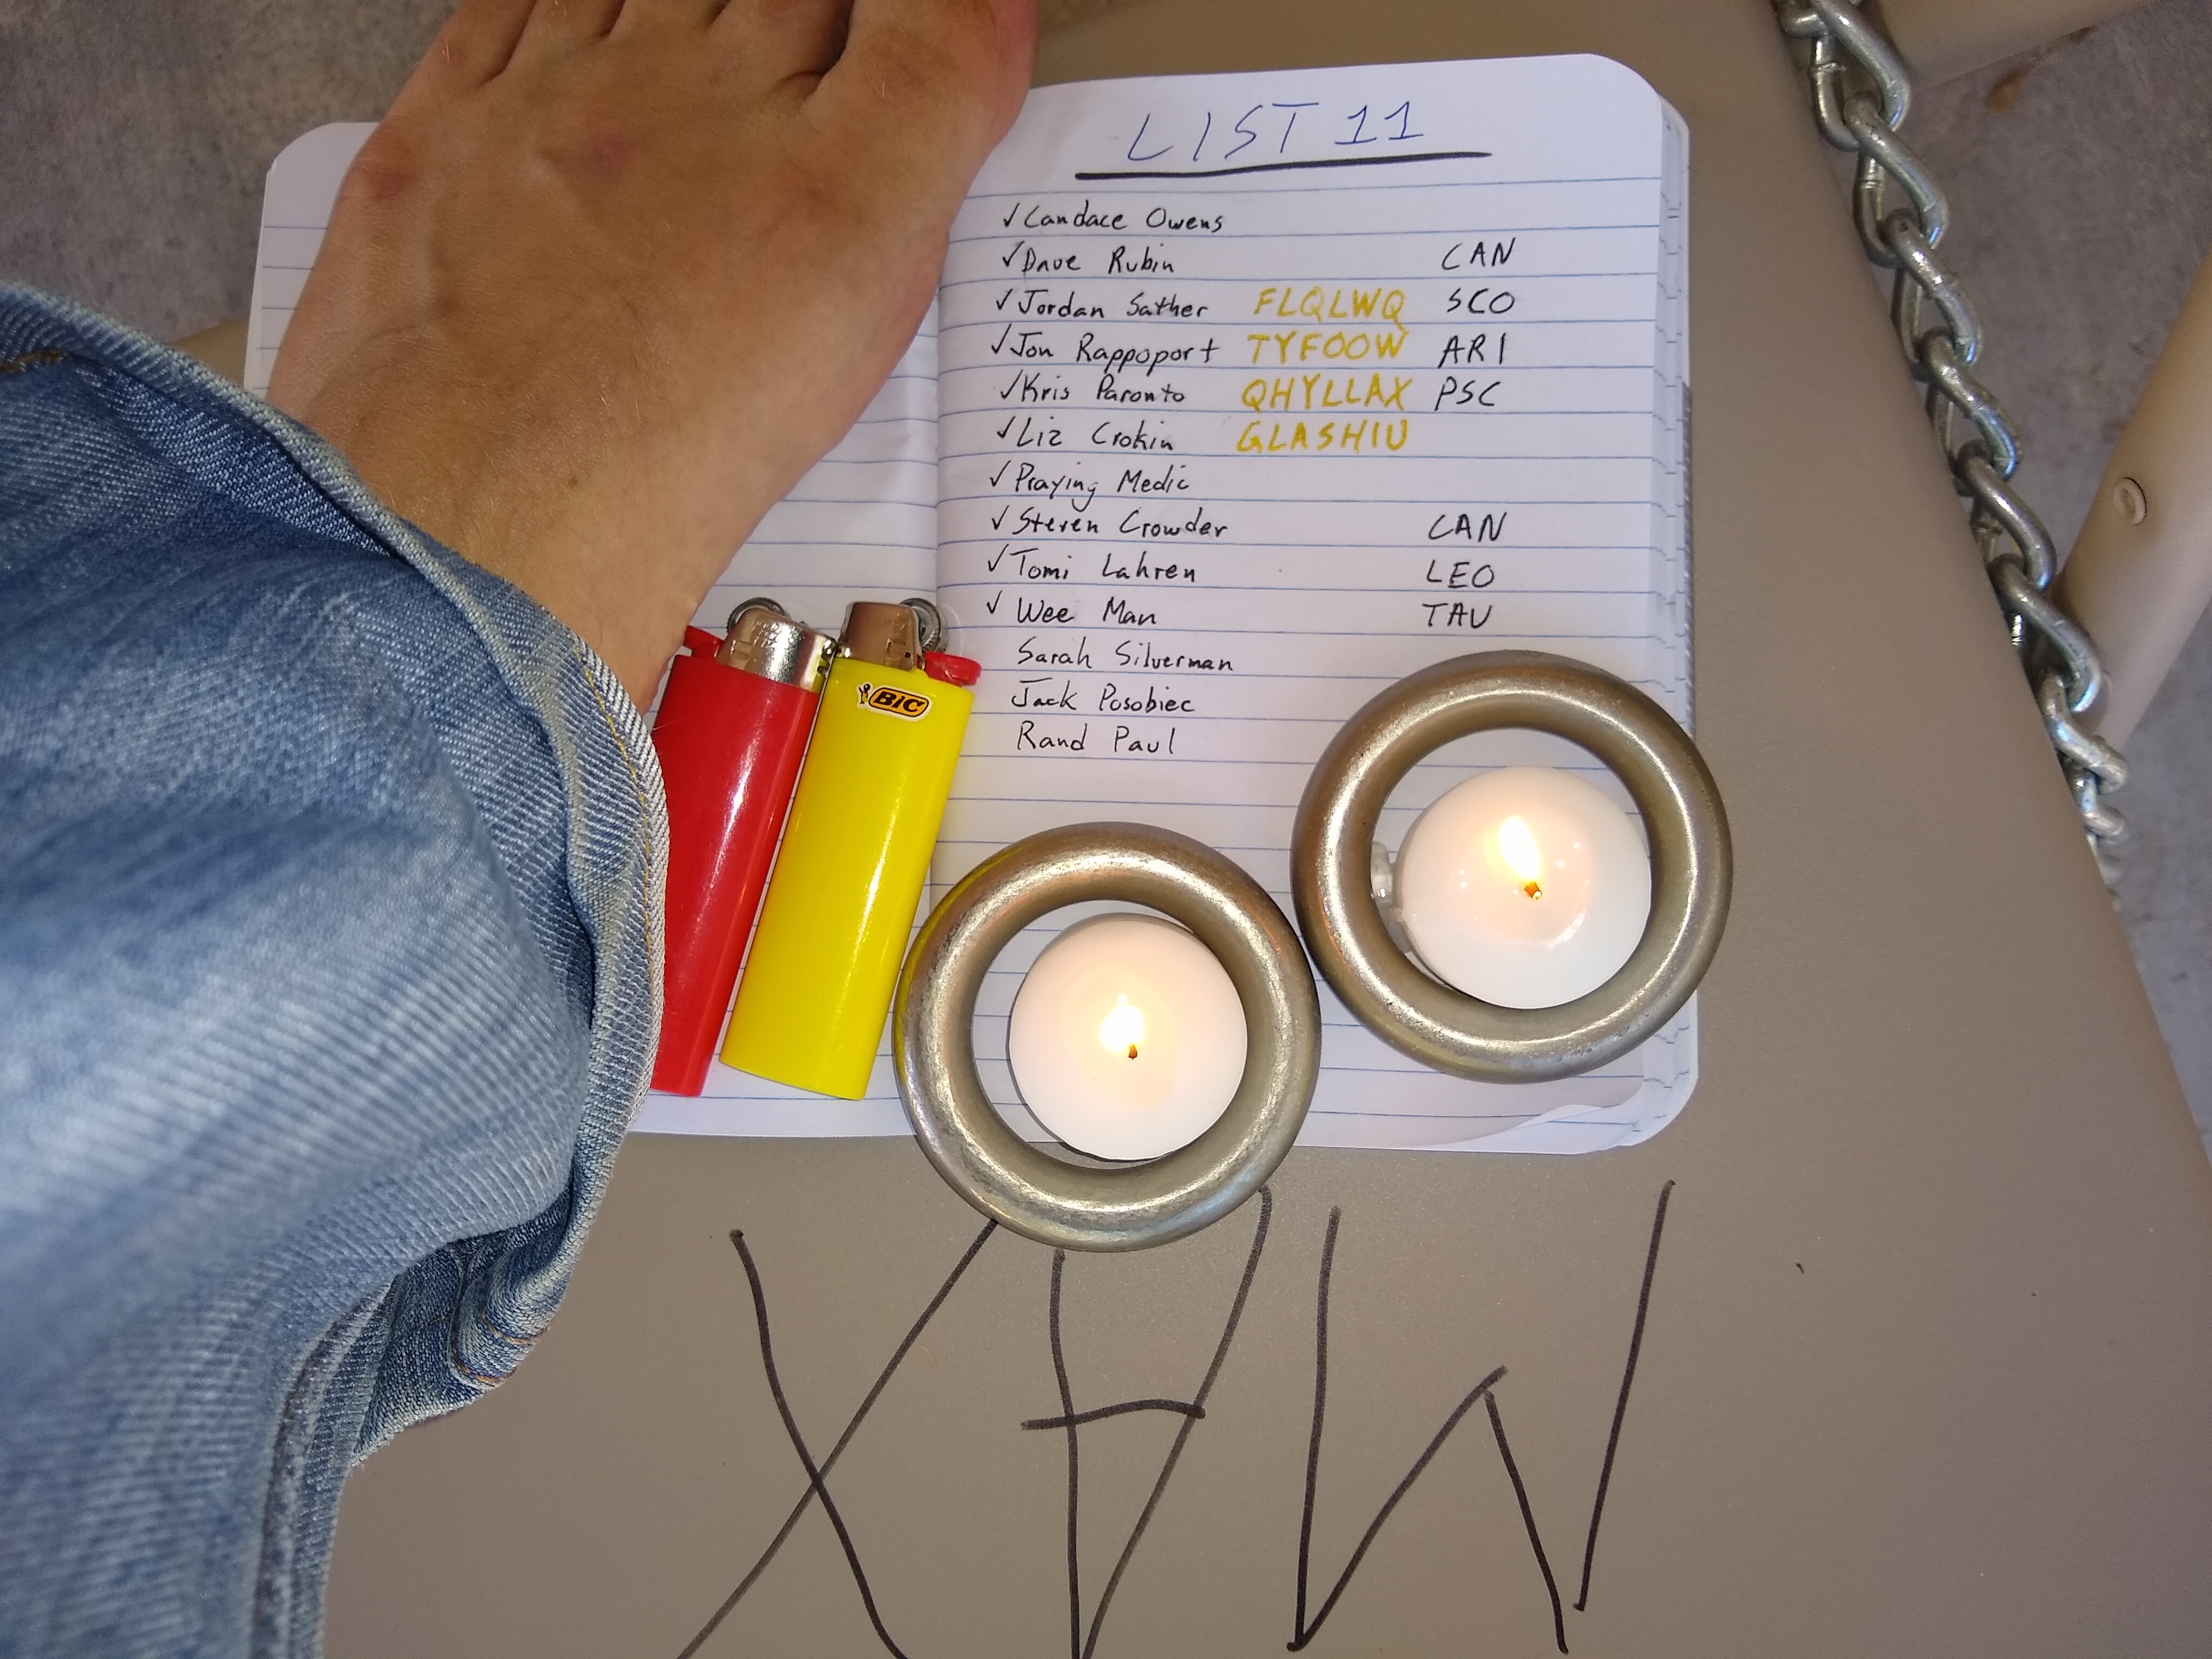 LIST 11
✓ Candace Owens
✓ Dave Rubin CAN
✓ Jordan Sather FLQLWQ SCO
✓ Jon Rappoport TYFOOW ARI
✓ Kris Paronto QHYLLAX PSC
✓ Liz Crokin GLASHIU
✓ Praying Medic
✓ Steven Crowder CAN
✓ Tomi Lahren LEO
✓ Wee Man TAU
Sarah Silverman
Jack Posobiec
Rand Paul
BIC
MAX